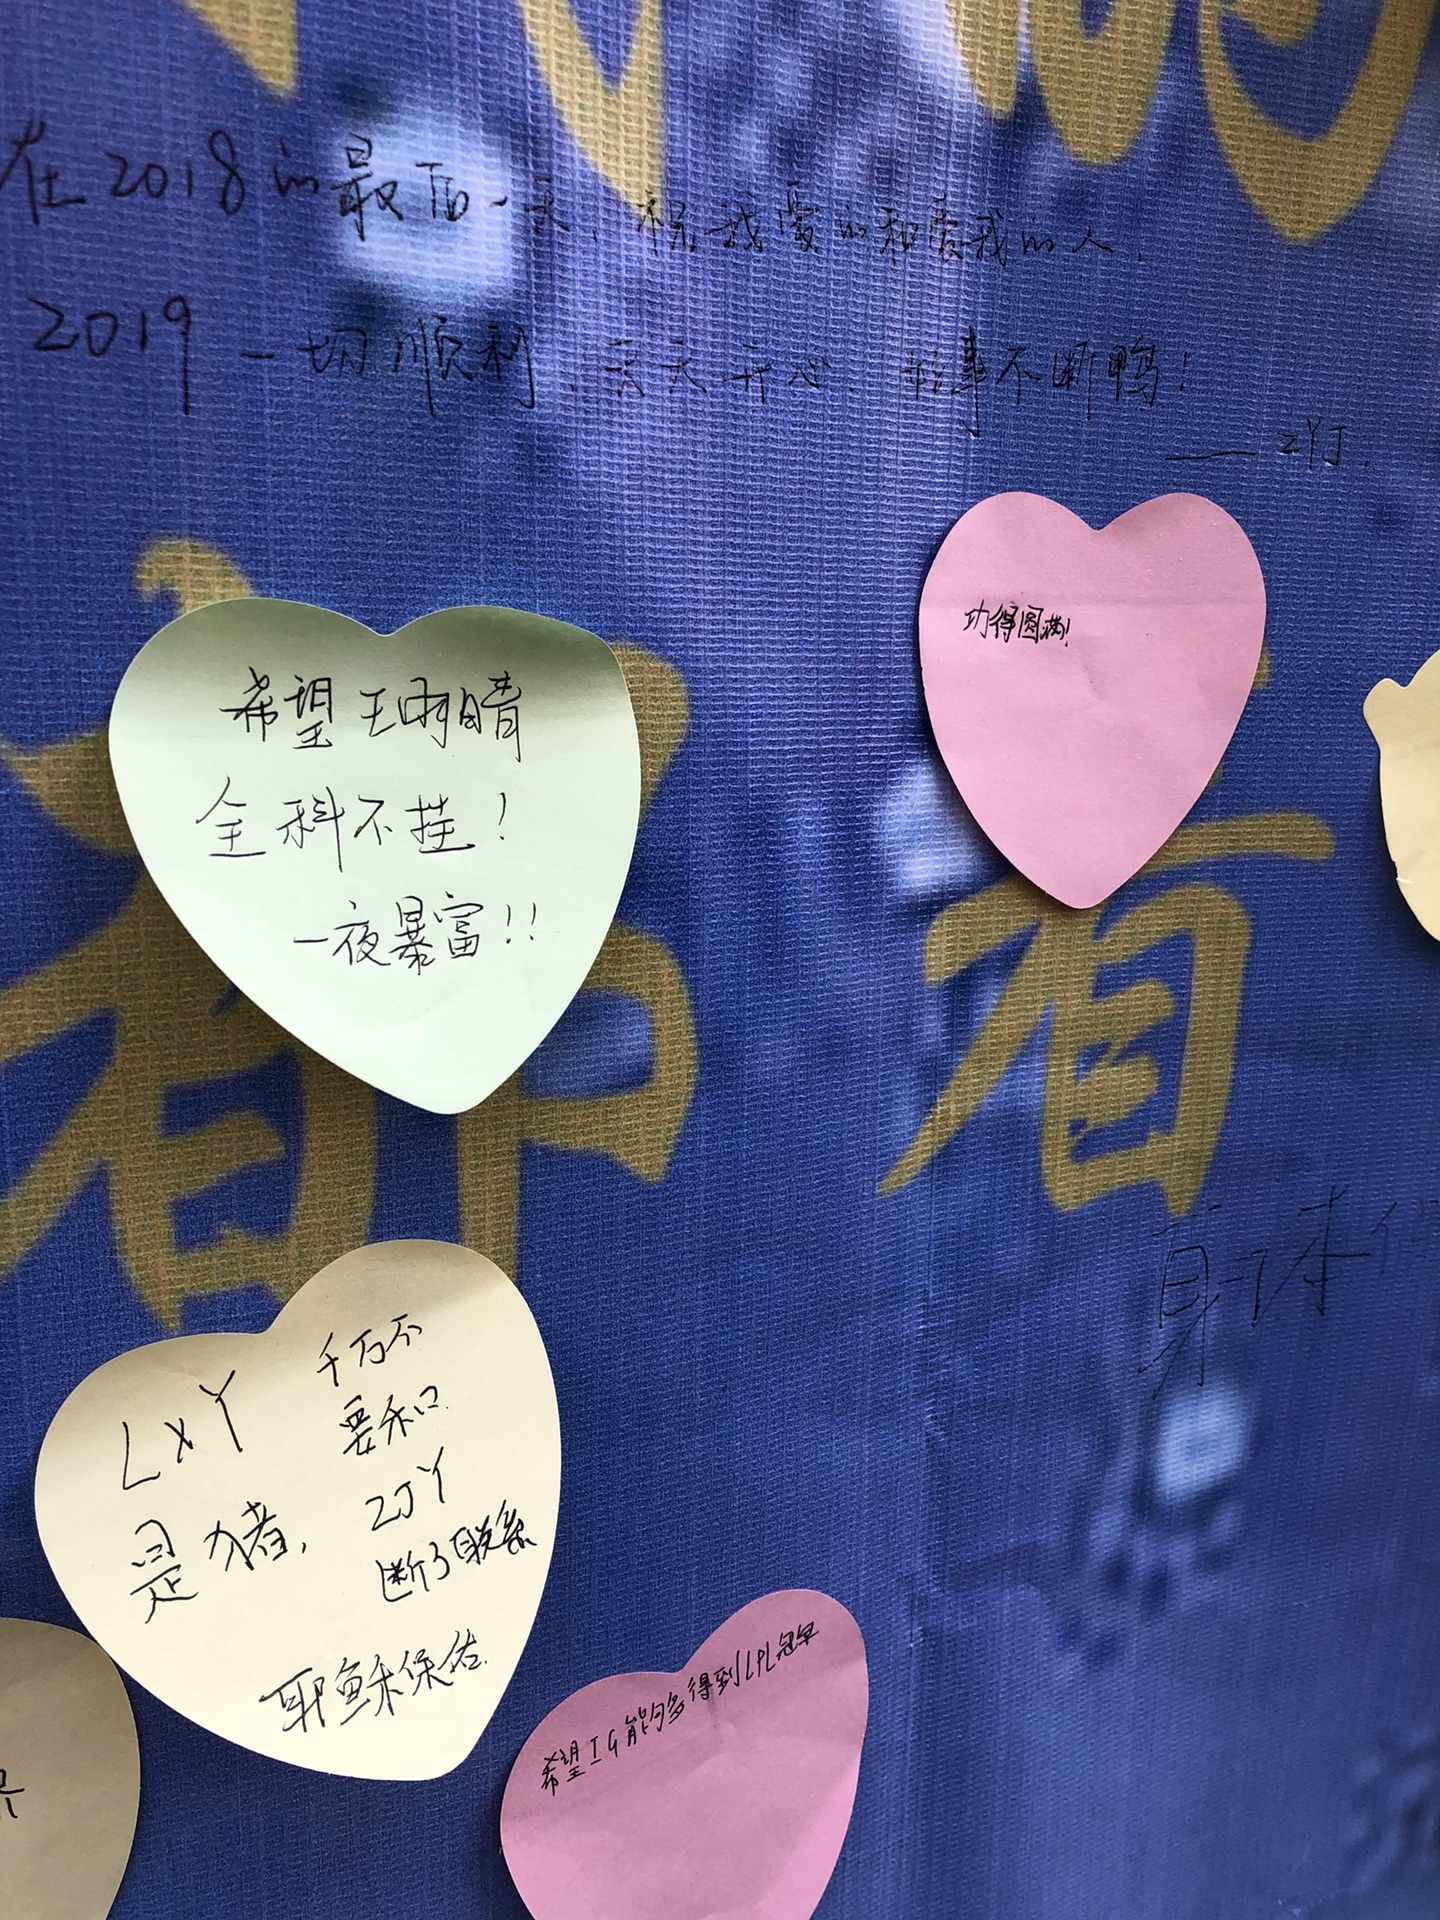 在2018的最后一天，祝我爱的和爱我的人，
2019一切顺利、天天开心、好事不断鸭！
——ZYJ.
功得圆满！
希望王雨晴
全科不挂！
一夜暴富！！
都有
身体
LXY
是猪，
千万不
要和
ZJY
断了联系
耶稣保佑.
希望IG能够多得到LPL冠军